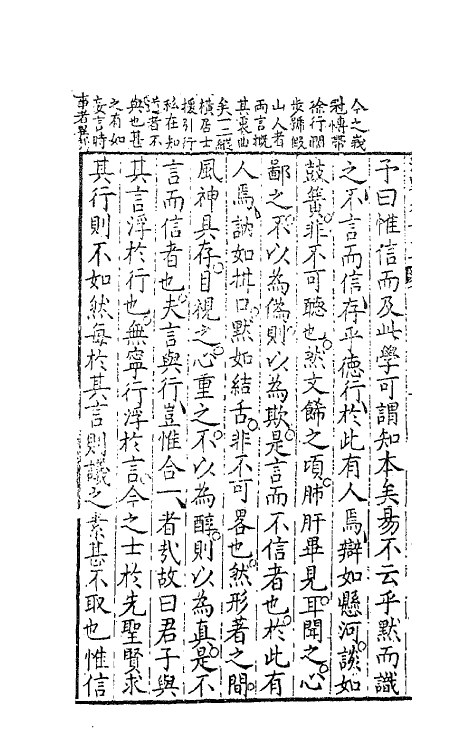 今之峩
冠愽帶
徐行闊
步號假
山人者
而言概
其衷曲
矣一二縱
橫居士
援引行
私在知
音不
與也甚
之有如
妄言時
事者
予曰惟信而及此學可謂知本矣昜不云乎默而識
之不言而信存乎德行於此有人焉辯如懸河談如
鼓簧非不可聽也然文餙之頃肺肝畢見耳聞之心
鄙之不以為偽則以為欺是言而不信者也於此有
人焉訥如拱口默如結舌非不可畧也然形著之間
風神具存目視之心重之不以為醇則以為真是不
言而信者也夫言與行豈惟合一者㢤故曰君子與
其言浮於行也無寧行浮於言今之士於先聖賢求
其行則不如然每於其言則議之素甚不取也惟信